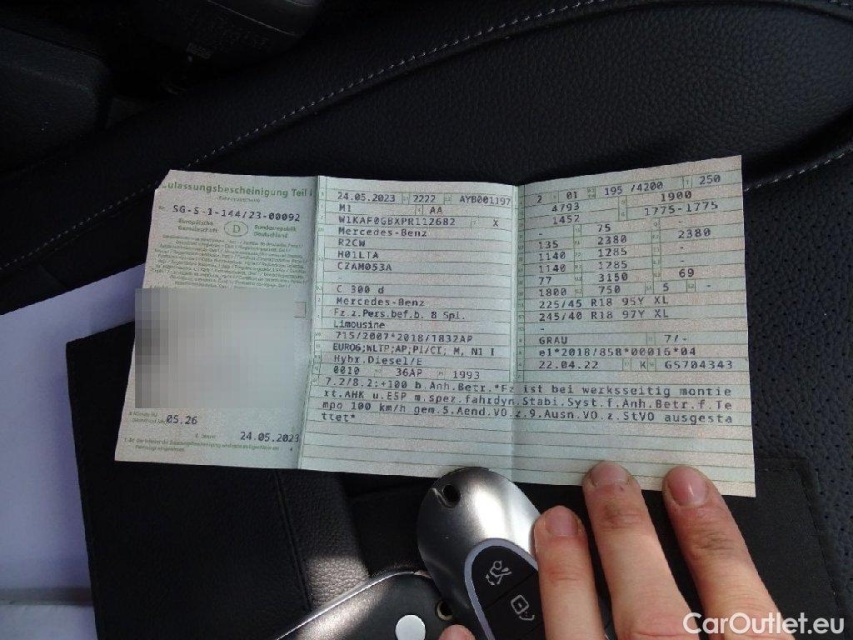 Zulassungsbescheinigung Teil I
SG-S-1-144/23-00092
Europäische
Bundesrepublik
Deutschland
D
05.26
24.05.2023
24.05.2023 2222 AYB001197
M1 AA
W1KAF0GBXPR112682 X
Mercedes-Benz
R2CW
H01LTA
CZAM053A
C 300 d
Mercedes-Benz
Fz.z.Pers.bef.b. 8 Spl.
Limousine
715/2007*2018/1832AP
EURO6;WLTP;AP;PI/CI; M, N1 I
Hybr.Diesel/E
0010 36AP 1993
2 01 195 /4200 250
4793 1900
1452 1775-1775
- 75
135 2380 2380
1140 1285
1140 1285
77 3150 69
1800 750 5 -
225/45 R18 95Y XL
245/40 R18 97Y XL
-
GRAU 7/-
e1*2018/858*00016*04
22.04.22 K G5704343
7.2/8.2:+100 b.Anh.Betr.*Fz ist bei werksseitig montie
xt.AHK u.ESP m.spez.fahrdyn.Stabi.Syst.f.Anh.Betr.f.Te
mpo 100 km/h gem.9.Aend.VO z.9.Ausn.VO z.StVO ausgesta
ttet*
CarOutlet.eu